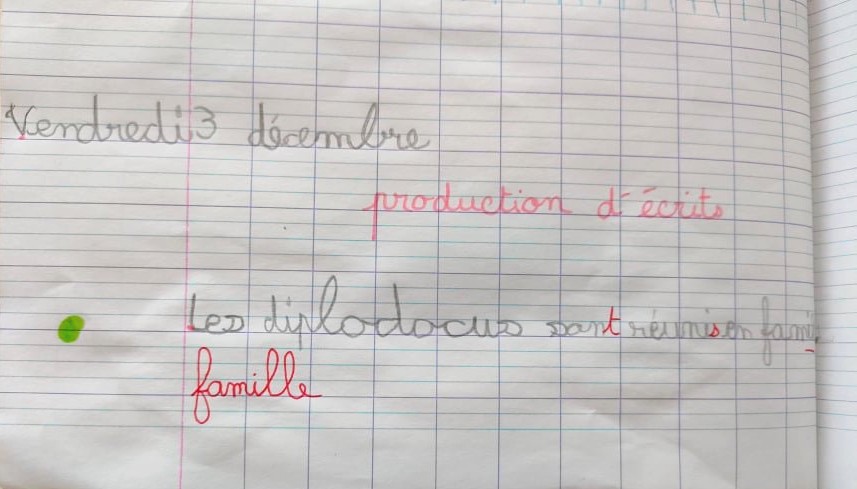 Vendredi 3 décembre
production d'écrits
Les diplodocus sont réunis en fami
famille